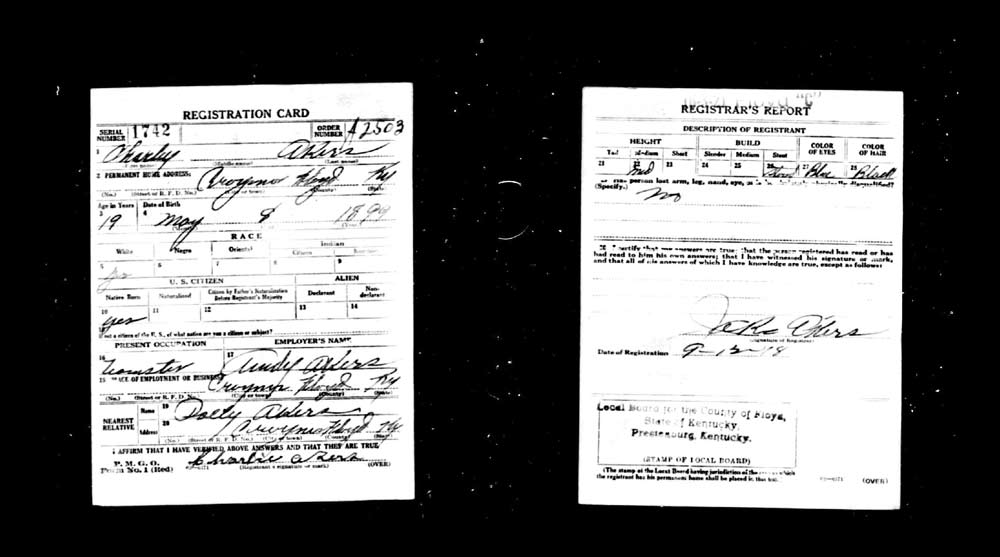 REGISTRATION CARD
SERIAL NUMBER 1742 ORDER NUMBER A2503
1 Charley Akers
(First name) (Middle name) (Last name)
2 PERMANENT HOME ADDRESS: Floyd Ky
(No.) (Street or R. F. D. No.) (City or town) (County) (State)
Age in Years Date of Birth
3 4
19 May 8 1899
(Year.)
RACE
White Negro Oriental Indian
Citizen
5 6 7 8 9
U. S. CITIZEN ALIEN
Native Born Naturalized Citizen by Father's Naturalization Before Registrant's Majority Declarant Non-declarant
10 11 12 13 14
yes
If not a citizen of the U. S., of what nation are you a citizen or subject?
PRESENT OCCUPATION EMPLOYER'S NAME
16 17
Teamster Andy Akers
PLACE OF EMPLOYMENT OR BUSINESS
Floyd Ky
(No.) (Street or R. F. D. No.) (City or town) (County) (State)
NEAREST RELATIVE
Name 19 Akers
Address 20 Floyd Ky
(No.) (Street or R. F. D. No.) (City or town) (County) (State)
I AFFIRM THAT I HAVE VERIFIED ABOVE ANSWERS AND THAT THEY ARE TRUE
P. M. G. O.
Form No. 1 (Red) Charlie Akers
(Registrant's signature or mark) (OVER)
REGISTRAR'S REPORT
DESCRIPTION OF REGISTRANT
HEIGHT BUILD COLOR OF EYES COLOR OF HAIR
Tall Medium Short Slender Medium Stout
21 22 23 24 25
Med Blue Black
person lost arm, leg, hand, eye,
(Specify.) no
I certify that my answers are true; that the person registered has read or has
had read to him his own answers; that I have witnessed his signature or mark,
and that all of his answers of which I have knowledge are true, except as follows:
Akers
(Signature of Registrar)
Date of Registration 9-12-18
Local Board for the County of Floyd,
State of Kentucky,
Prestonsburg, Kentucky.
(STAMP OF LOCAL BOARD)
(The stamp of the Local Board having jurisdiction of the which
the registrant has his permanent home shall be placed in this box.
(OVER)